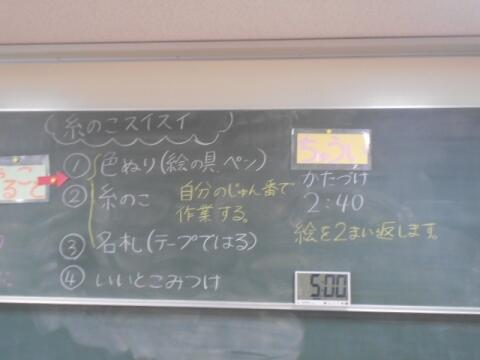 糸のこスイスイ
① 色ぬり(絵の具 ペン)
② 糸のこ 自分のじゅん番で
作業する。
③ 名札(テープではる)
④ いいとこみつけ
ちゅうい
かたづけ
2:40
絵を2まい返します。
5:00